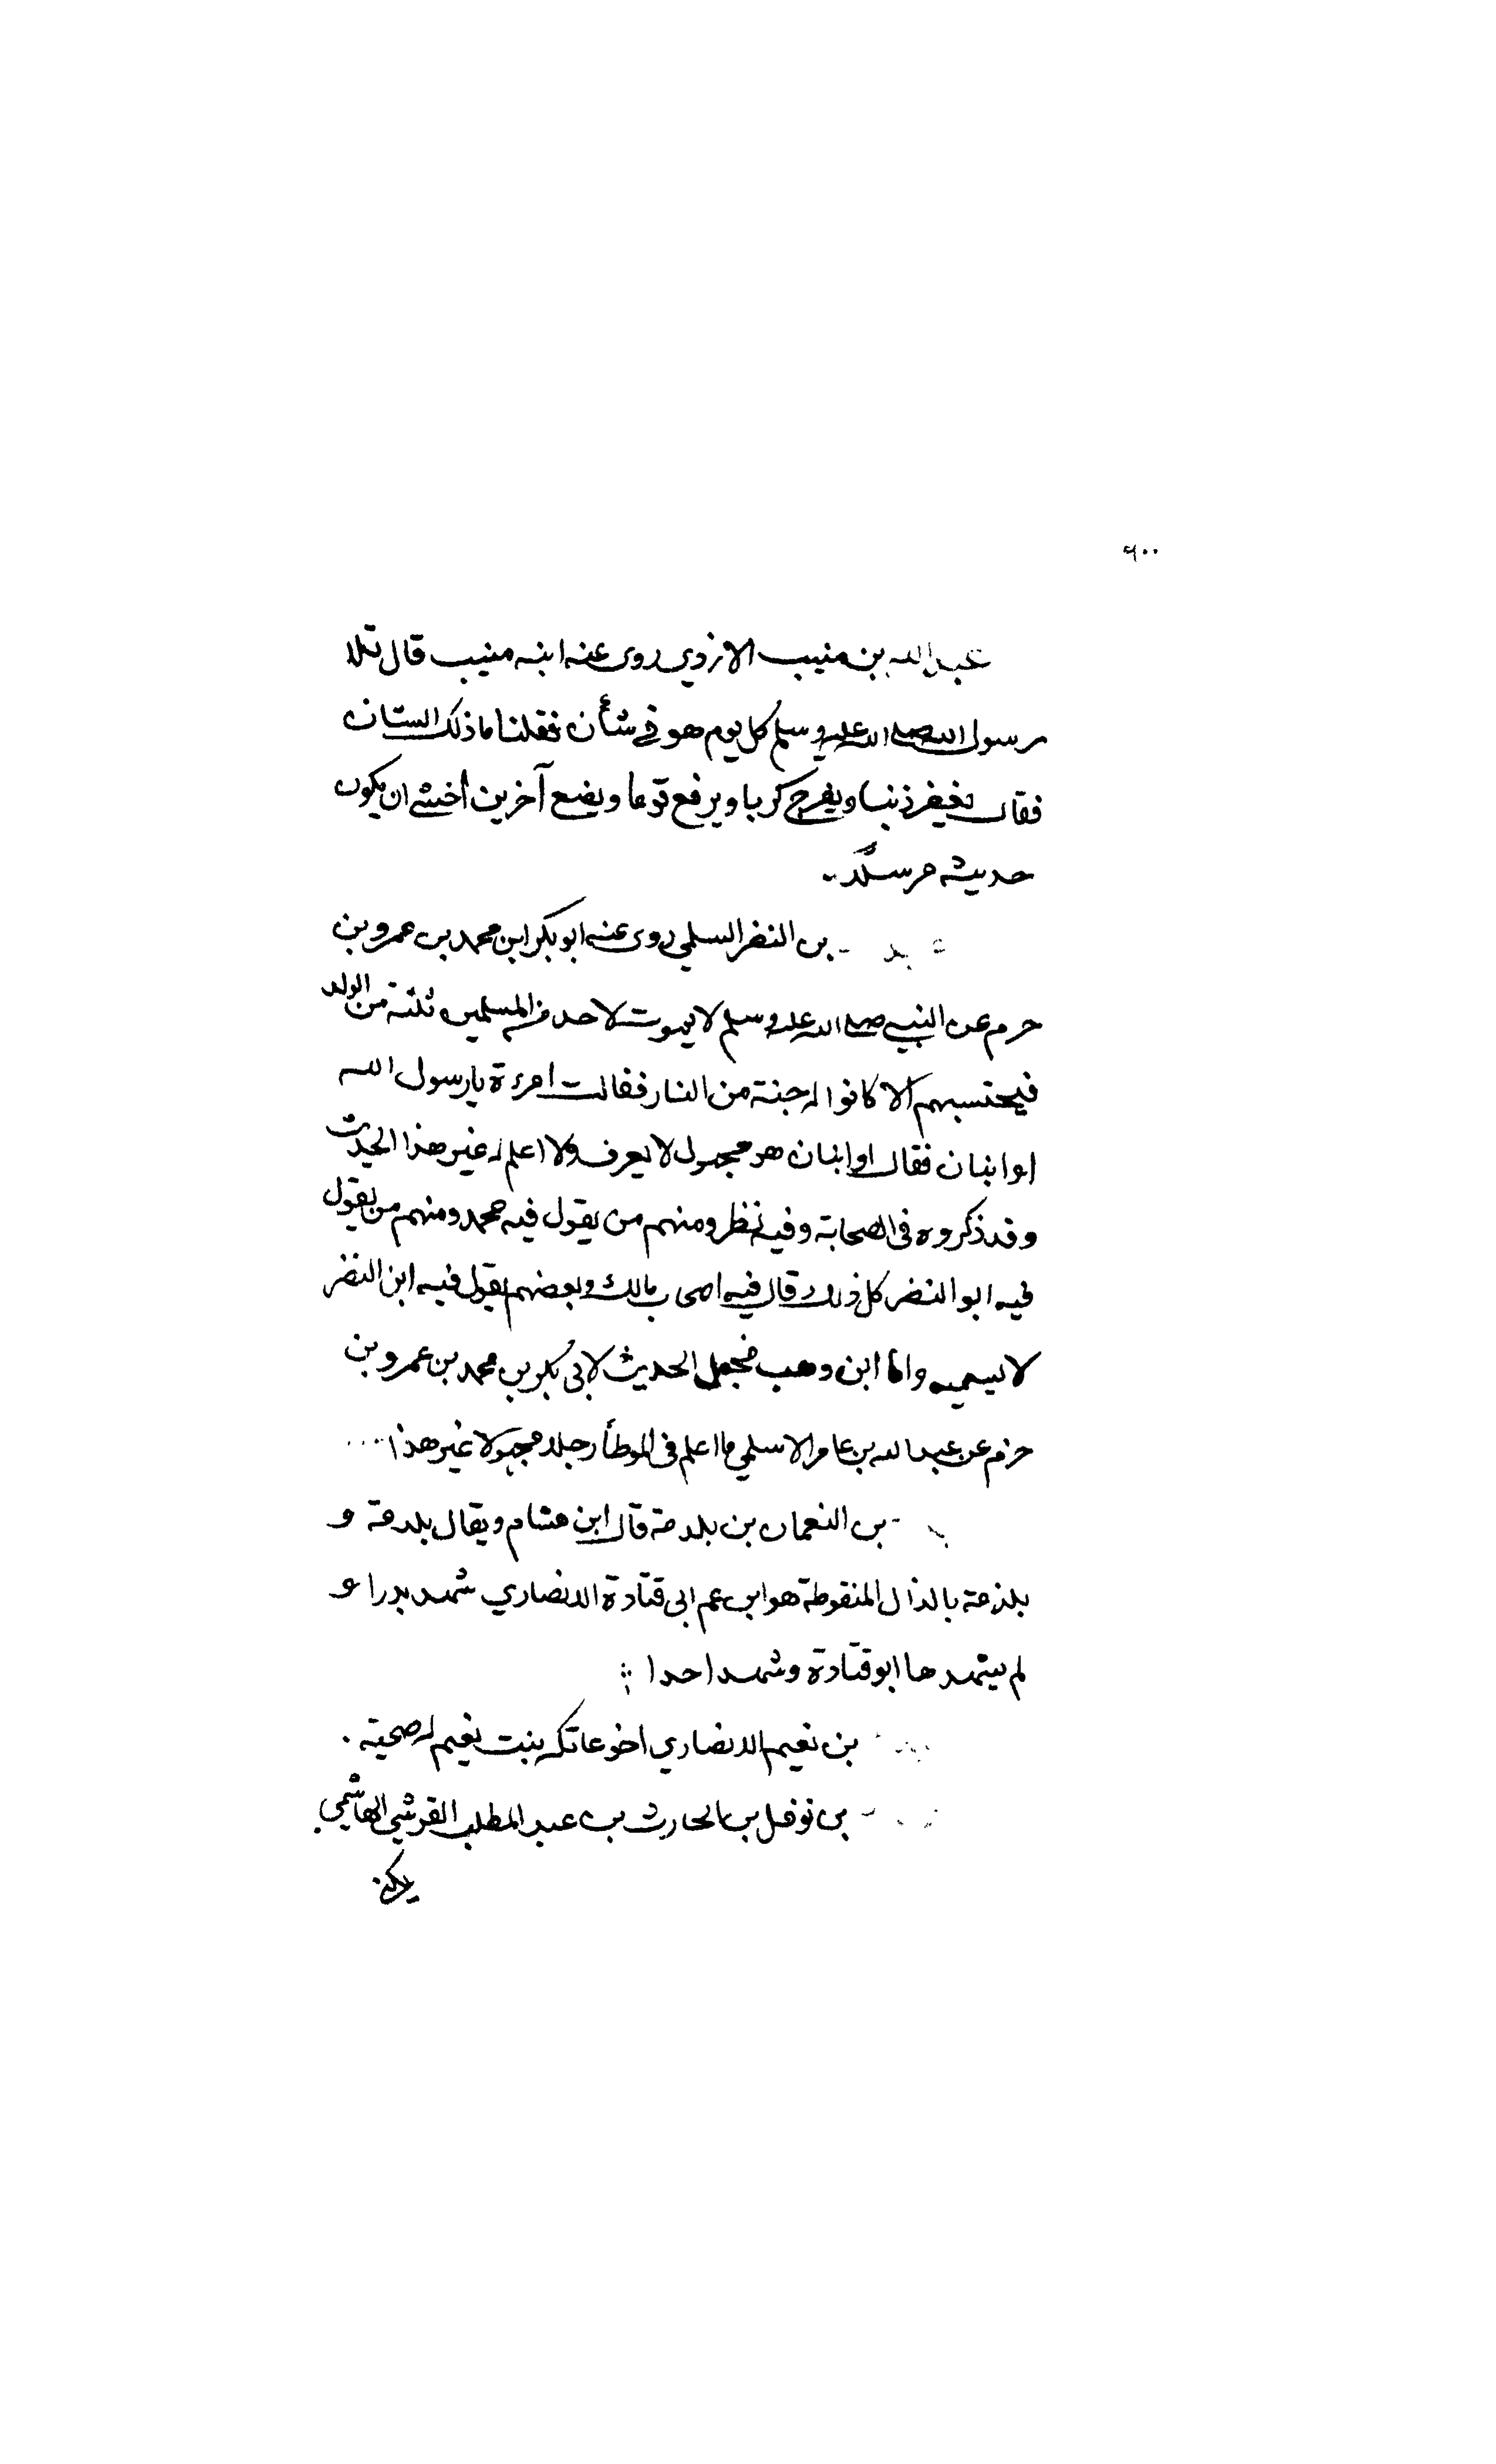 ٦٠٠
عبد الله بن منيب الازدي روى عنه ابنه منيب قال تلا
رسول الله صلى الله عليه وسلم كل يوم هو في شأن فقلنا ما ذلك الشان
فقال يغفر ذنبا ويفرج كربا ويرفع قوما ويضع آخرين أخشى ان يكون
حديثه مرسلا
بن النضر السلمي روى عنه ابو بكر ابن محمد بن عمرو بن
حزم عن النبي صلى الله عليه وسلم لا يموت لاحد من المسلمين ثلثة من الولد
فيحتسبهم الا كانوا له جنة من النار فقالت امرءة يا رسول الله
او ابنان فقال او ابنان هو مجهول لا يعرف ولا اعلم له غير هذا الحديث
وقد ذكروه في الصحابة وفيه نظر ومنهم من يقول فيه محمد ومنهم من يقول
فيه ابو النضر كل ذلك قال فيه اصحاب مالك وبعضهم يقول فيه ابن النضر
لا يسميه واما ابن وهب فجعل الحديث لابي بكر بن محمد بن عمرو بن
حزم عن عبد الله بن عامر الاسلمي ما اعلم في الموطأ رجلا مجهولا غير هذا
بن النعمان بن بلدمة قال ابن هشام ويقال بلدمة و
بلذمة بالذال المنقوطة هو ابن عم ابى قتادة الانصاري شهد بدرا و
لم يشهدها ابو قتادة وشهد احدا
بن نعيم الانصاري اخو عاتكه بنت نعيم له صحبة .
بن نوفل بن الحارث بن عبد المطلب القرشي الهاشمي
يكنى